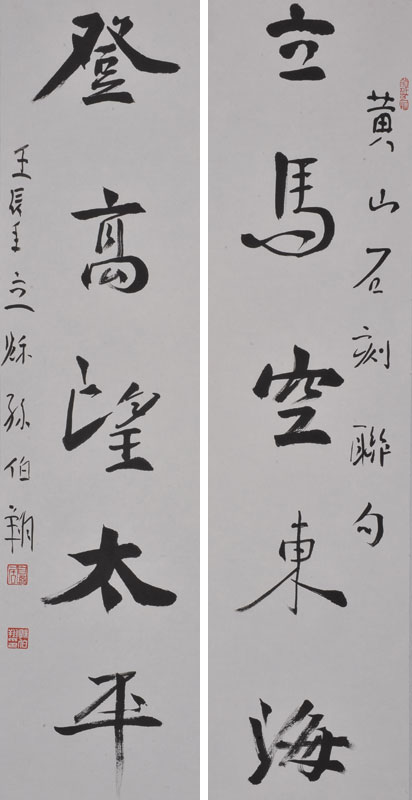 黃山石刻聯句
立馬空東海
登高望太平
壬辰立秌孫伯翔